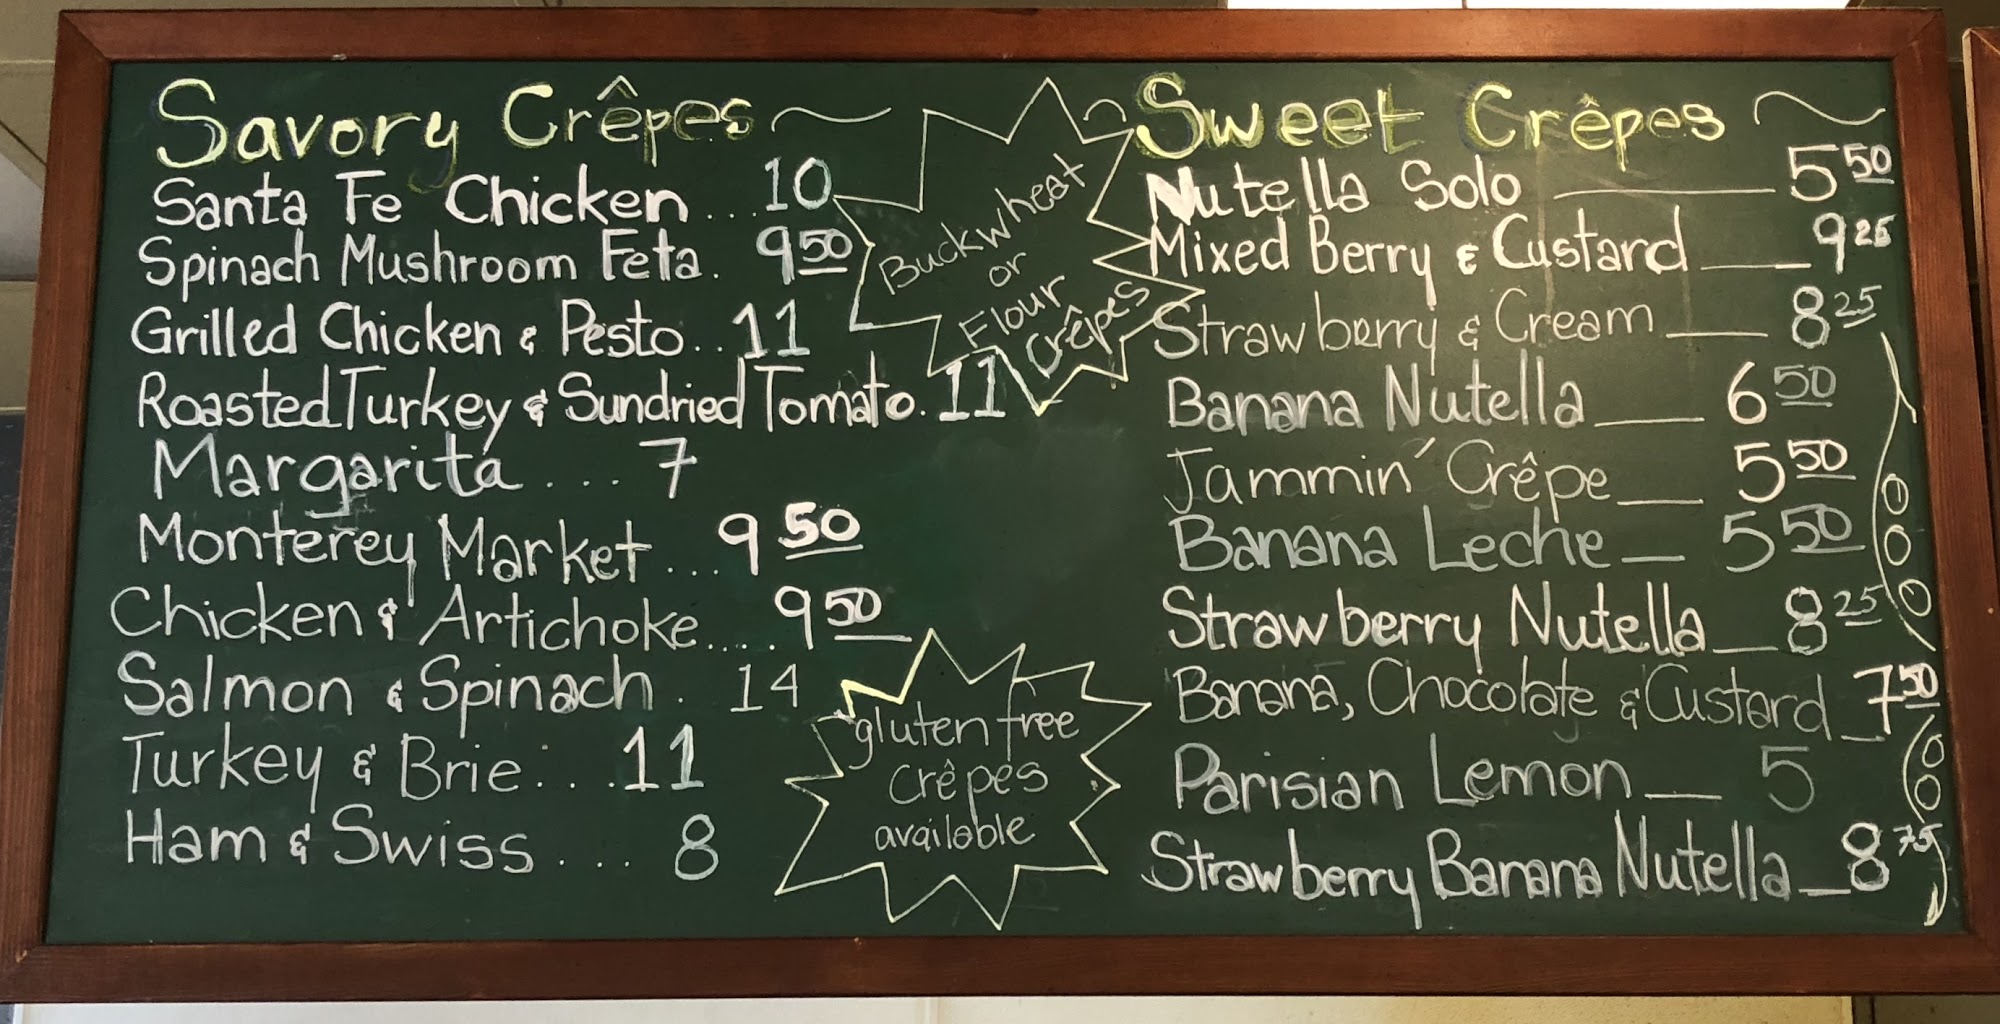 Savory Crêpes
Santa Fe Chicken ... 10
Spinach Mushroom Feta. 9 50
Grilled Chicken & Pesto.. 11
Roasted Turkey & Sundried Tomato. 11
Margarita ... 7
Monterey Market ... 9 50
Chicken & Artichoke.... 9 50
Salmon & Spinach . 14
Turkey & Brie... 11
Ham & Swiss ... 8
Buckwheat
or
Flour
Crêpes
gluten free
crêpes
available
Sweet Crêpes
Nutella Solo 5 50
Mixed Berry & Custard 9 25
Strawberry & Cream 8 25
Banana Nutella 6 50
Jammin' Crêpe 5 50
Banana Leche 5 50
Strawberry Nutella 8 25
Banana, Chocolate & Custard 7 50
Parisian Lemon 5
Strawberry Banana Nutella 8 75